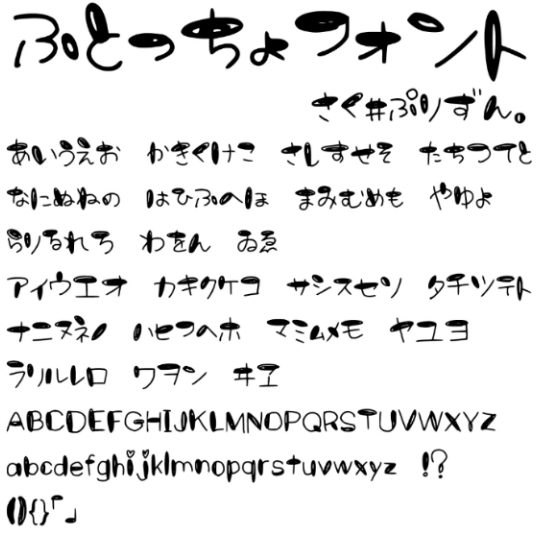 ぷとっちょフォント
さく#ぷりずん。
あいうえお かきくけこ さしすせそ たちつてと
なにぬねの はひふへほ まみむめも やゆよ
らりるれろ わをん ゐゑ
アイウエオ カキクケコ サシスセソ タチツテト
ナニヌネノ ハヒフヘホ マミムメモ ヤユヨ
ラリルレロ ワヲン ヰヱ
ABCDEFGHIJKLMNOPQRSTUVWXYZ
abcdefghijklmnopqrstuvwxyz !?
(){}「」